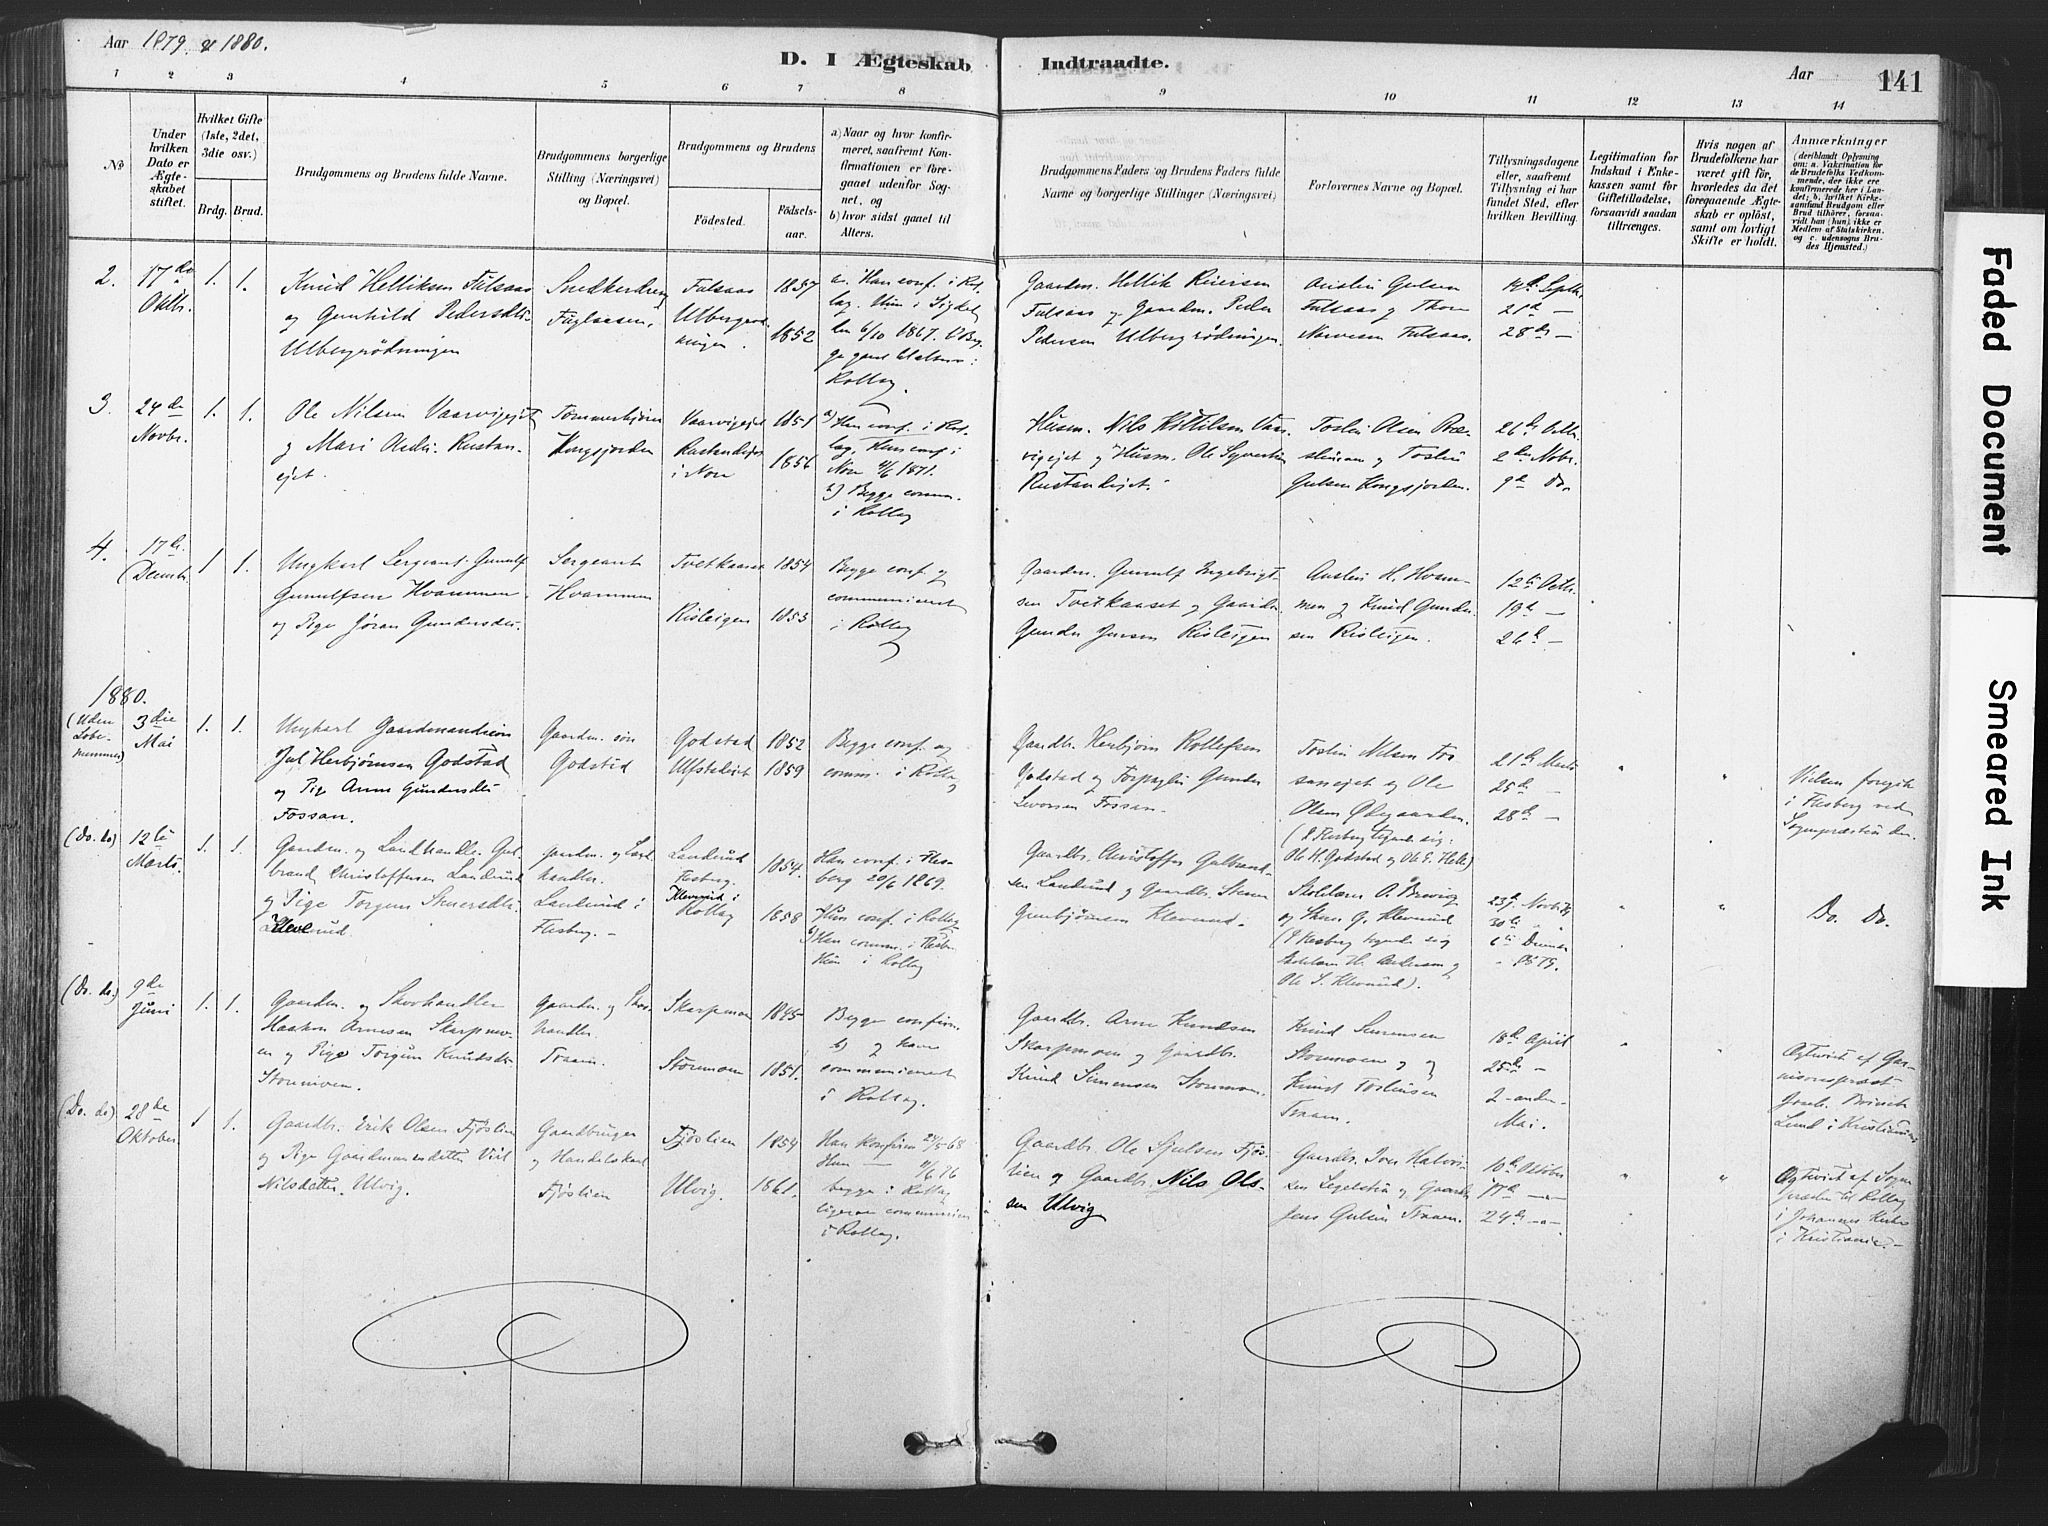 Aar 1879. & 1880.
D. I Ægteskab Indtraadte.
Aar 141
1 2 3 4 5 6 7 8 9 10 11 12 13 14
No
Under hvilken Dato er Ægteskabet stiftet.
Hvilket Gifte (1ste, 2det, 3die osv.)
Brdg. Brud.
Brudgommens og Brudens fulde Navne.
Brudgommens borgerlige Stilling (Næringsvei) og Bopæl.
Brudgommens og Brudens
Fødested. Fødselsaar.
a) Naar og hvor konfirmeret, saafremt Konfirmationen er foregaaet udenfor Sognet, og
b) hvor sidst gaaet til Alters.
Brudgommens Faders og Brudens Faders fulde Navne og borgerlige Stillinger (Næringsvei)
Forlovernes Navne og Bopæl.
Tillysningsdagene eller, saafremt Tillysning ei har fundet Sted, efter hvilken Bevilling.
Legitimation for Indskud i Enkekassen samt for Giftetilladelse, forsaavidt saadan tiltrænges.
Hvis nogen af Brudefolkene har været gift før, hvorledes da det foregaaende Ægteskab er opløst, samt om lovligt Skifte er holdt.
Anmærkninger
(deriblandt Oplysning om: a. Vakcination for Brudefolks Vedkommende, der ikke ere konfirmerede her i Landet; b. hvilket Kirkesamfund Brudgom eller Brud tilhører, forsaavidt han (hun) ikke er Medlem af Statskirken. og c. udensogns Brudes Hjemsted.)
2. 17de Oktbr. 1. 1.
Knud Helliksen Fulsaas
og Gunhild Pedersdtr.
Ulbergrødningen
Snedkerdreng
Fulsaas 1857
1852
a. Han conf. i Rollag. Hun i Sigdal
den 6/10 1867.
Rollag.
Gaardm. Hellik Reiersen
Fulsaas og Gaardm. Peder
Pedersen Ulbergrødningen.
Austin Gulsen
Fulsaas og Thore
Fulsaas.
14de Septb.
21de —
28de —
3. 24de Novbr. 1. 1.
Ole Nilsen Vaarvigejet
og Mari Olsdtr. Rustandejet.
Kongsjorden
Vaarvigejet 1851
i Nore 1856
a) Han conf. i Rollag, Hun conf. i
Nore 1871.
b) Begge comm.
i Rollag
Husm. Nils Kittilsen Vaarvigejet og Husm. Ole
Rustandejet.
Tostin Olsen
og Tostin
Gulsen Kongsjorden.
26de Octbr.
2den Nvbr.
9de Do.
4. 17de Decmbr. 1 1.
Ungkarl Sergeant Gunulf
Gunulfsen Hvammen
og Pige Jøran Gundersdtr.
Sergeant
Hvammen
Tvetkaaset 1854
Risteigen 1853
Begge conf. og
communiceret
i Rollag
Gaardm. Gunulf Ingebrigtsen Tvetkaaset og Gaardm.
Gunder Jensen Risteigen
Austin H. Hvammen og Knud Gundersen Risteigen.
12te Octbr.
19de —
26de —
1880.
(Uden Løbenummer) 3die Mai 1. 1.
Ungkarl Gaardmandssøn
Jul Herbjørnsen Godstad
og Pige Anne Gundersdtr.
Fossan.
Gaardm. søn
Godstad
Godstad 1852
1859
Begge conf. og
comm. i Rollag
Gaardbr. Herbjørn Rollefsen
Godstad og Gunder
Levorsen Fossan.
Tostin Nilsen Fossanejet og Ole
Olsen Øvegaarden.
(I Flesberg tegnede sig:
Ole H. Godstad og Ole G. Helle)
21de Marts
25de —
28de —
" "
Vielsen foregik
i Flesberg ved
Sognepræsten der.
(Do. do) 12te Marts. 1. 1.
Gaardm. og Landhandler Gulbrand Christoffersen Landerud
og Pige Torgun Steensdtr.
Klevrud.
Gaardm. og Landhandler.
Landerud i
Flesberg.
Landerud
Flesberg. 1854.
Klevrud i
Rollag 1858
Han conf. i Flesberg 20/6 1869.
Hun conf. i Rollag
b) Han comm. i Flesb.
Hun i Rollag
Gaardbr. Christoffer Gulbrandsen Landerud og Gaardbr. Steen
Gunbjørnsen Klevrud.
Skolelærer A. Brevig
og Steen G. Klevrud
(I Flesberg tegnede sig
Skolelærer H. Andersen og
Ole S. Klevrud).
23de Novbr.
30te "
6te Decmbr.
1879.
" "
Do. Do.
(Do. do.) 9de Juni 1. 1.
Gaardm. og Skovhandler
Haakon Arnesen Skarpmoen og Pige Torgun Knudsdtr.
Stormoen.
Gaardm. og Skovhandler
Traaen.
Skarpmoen 1845
Stormoen 1851.
Begge confirm.
b) og have
communiceret
i Rollag.
Gaardbr. Arne Knudsen
Skarpmoen og Gaardbr.
Knud Simensen Stormoen.
Knud Simensen
Stormoen og
Knud Tostensen
Traaen.
18de April
25de —
2-anden
Mai.
" "
Ægteviet af Garnisonspræst
Lund i Kristiania
(Do. do) 28de Oktober 1 1.
Gaardbr. Erik Olsen Fjøslien
og Pige Gaardmansdatter
Nilsdatter Ulvig.
Gaardbruger
og Handelskarl
Fjøslien
Fjøslien 1854
Ulvig. 1861.
Han konfirm 24/5-68
Hun —
begge i Rollag
i Rollag.
Gaardbr. Ole Fjøslien og Gaardbr. Nils Olsen Ulvig
Gaardbr. Iver Halvorsen og Gaardbr.
Jens Gulsen Traaen.
10de Oktober
17de — " —
24de — " —
" "
Ægteviet af Sognepræsten til Rollag
i Johannes Kirke
i Kristiania. —
Faded Document
Smeared Ink